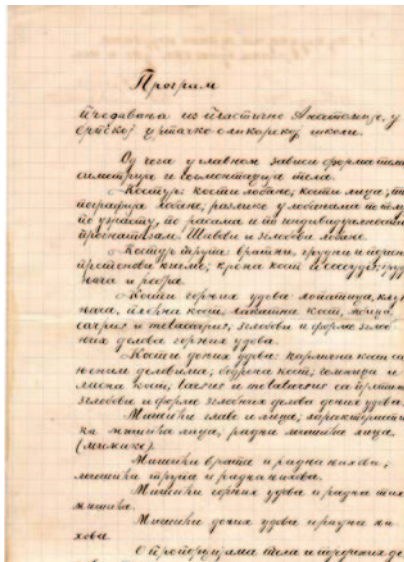 Програм
предавања из пластичне Анатомије, у
српској цртачко-сликарској школи.
Од чега у главном зависи форма тела
симетрија и тела.
Костур: кости лобање; кости лица;
пографија лобање; разлике у лобањама
по узрасту, по расама и по индивидуалности
прогнатизам. Шавови и зглобови лобање.
Костур трупа: вратни, грудни и
кичме; крсна кост
и ребра.
Кости горњих удова: лопатица,
лакатна кост, жбица,
carpus и metacarpus; зглобови и форма
них делова горњих удова.
Кости доњих удова: карлична кост са
њеним деловима; бедрена кост; голењача и
лисна кост; tarsus и metatarsus са
зглобови и форма зглобних делова доњих удова.
Мишићи главе и лица;
мишића лица, радња мишића лица
(мимике).
Мишићи врата и радња њихова;
мишићи трупа и радња њихова.
Мишићи горњих удова и радња тих
мишића.
Мишићи доњих удова и радња њи
хова.
О пропорцијама тела и